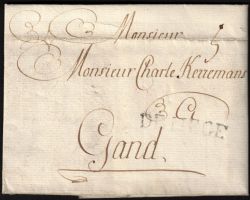 Monsieur
Monsieur Charle Kerremans
à
DE LIEGE
Gand